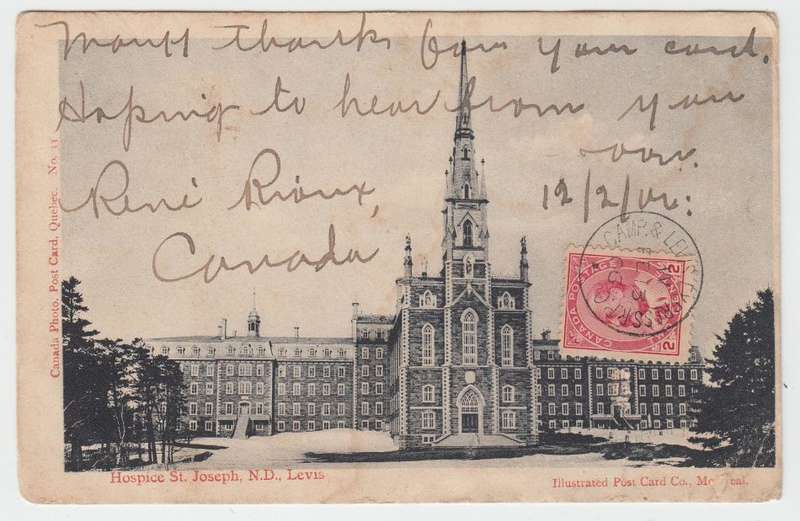 thanks for your card.
Hoping to hear from you
soon.
René Rioux,
12/2/06.
Canada
CAMP. & LEVIS
CANADA POSTAGE
2 2
Canada Photo. Post Card, Quebec. No. 33
Hospice St. Joseph, N.D., Levis
Illustrated Post Card Co., Mo